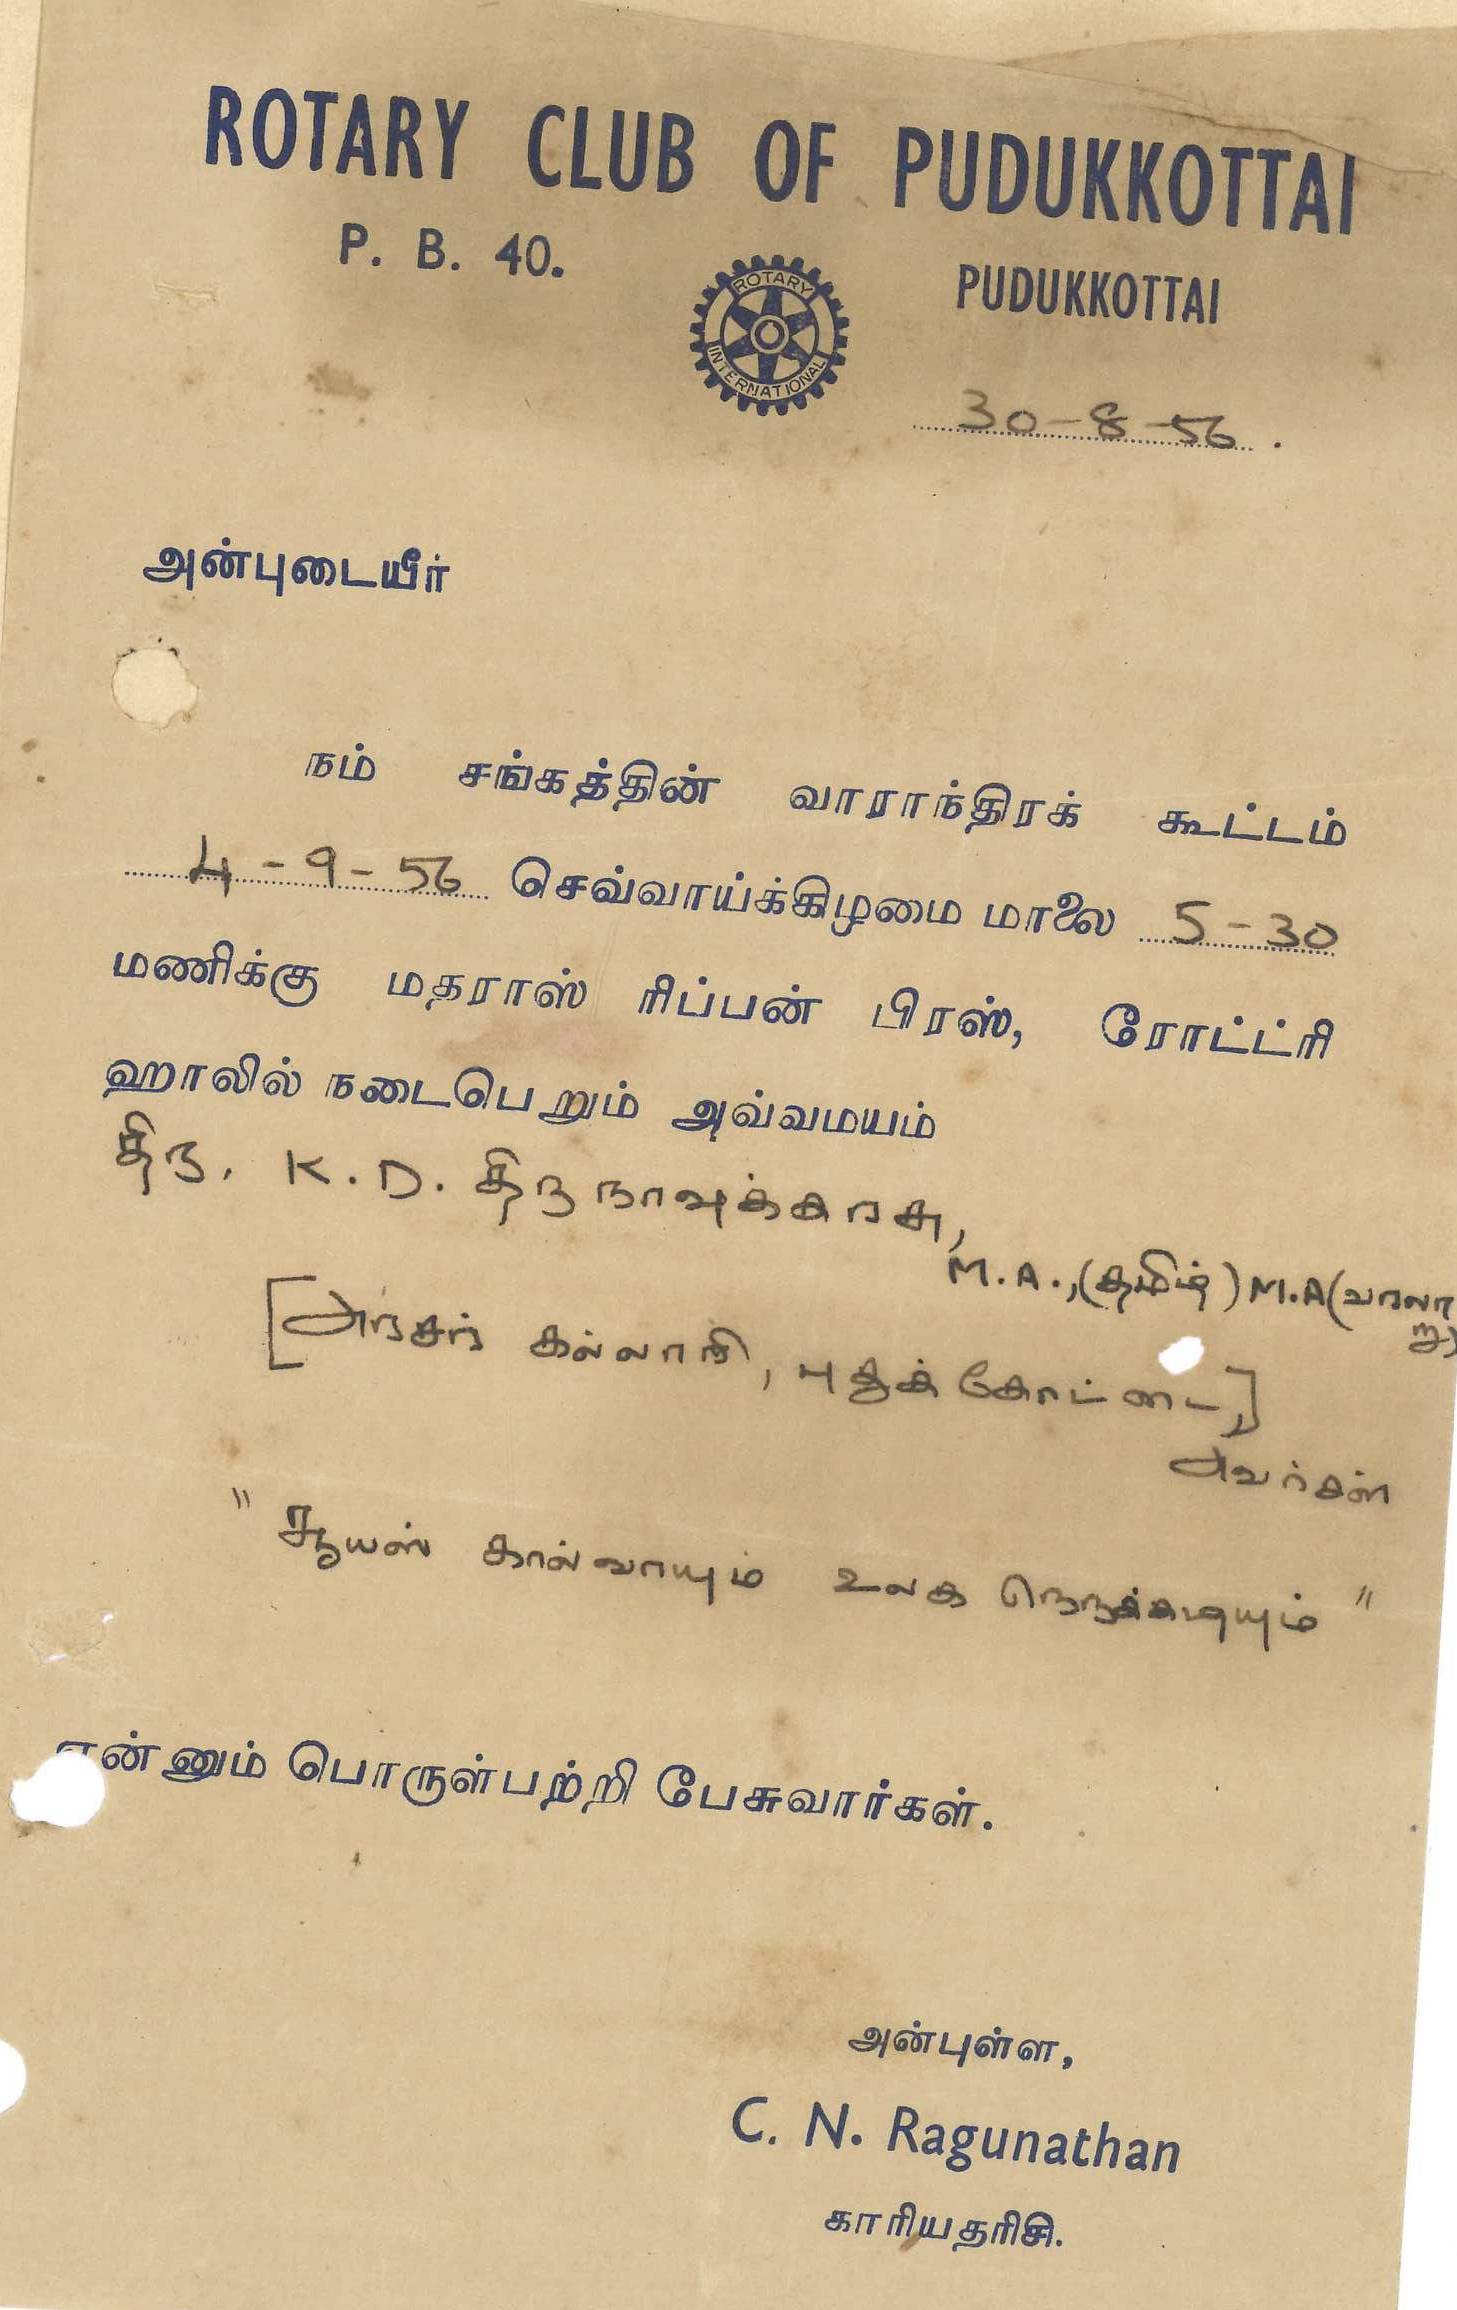 ROTARY CLUB OF PUDUKKOTTAI
P. B. 40.
PUDUKKOTTAI
ROTARY
INTERNATIONAL
30-8-56.
அன்புடையீர்
நம் சங்கத்தின் வாராந்திரக் கூட்டம்
4-9-56 செவ்வாய்க்கிழமை மாலை 5-30
மணிக்கு மதராஸ் ரிப்பன் பிரஸ், ரோட்ட்ரி
ஹாலில் நடைபெறும் அவ்வமயம்
திரு. K. D. திருநாவுக்கரசு,
M.A.,(தமிழ்) M.A(வரலா
று)
[அரசர் கல்லூரி, புதுக்கோட்டை,]
அவர்கள்
"சூயஸ் கால்வாயும் உலக நெருக்கடியும்"
என்னும் பொருள்பற்றி பேசுவார்கள்.
அன்புள்ள,
C. N. Ragunathan
காரியதரிசி.